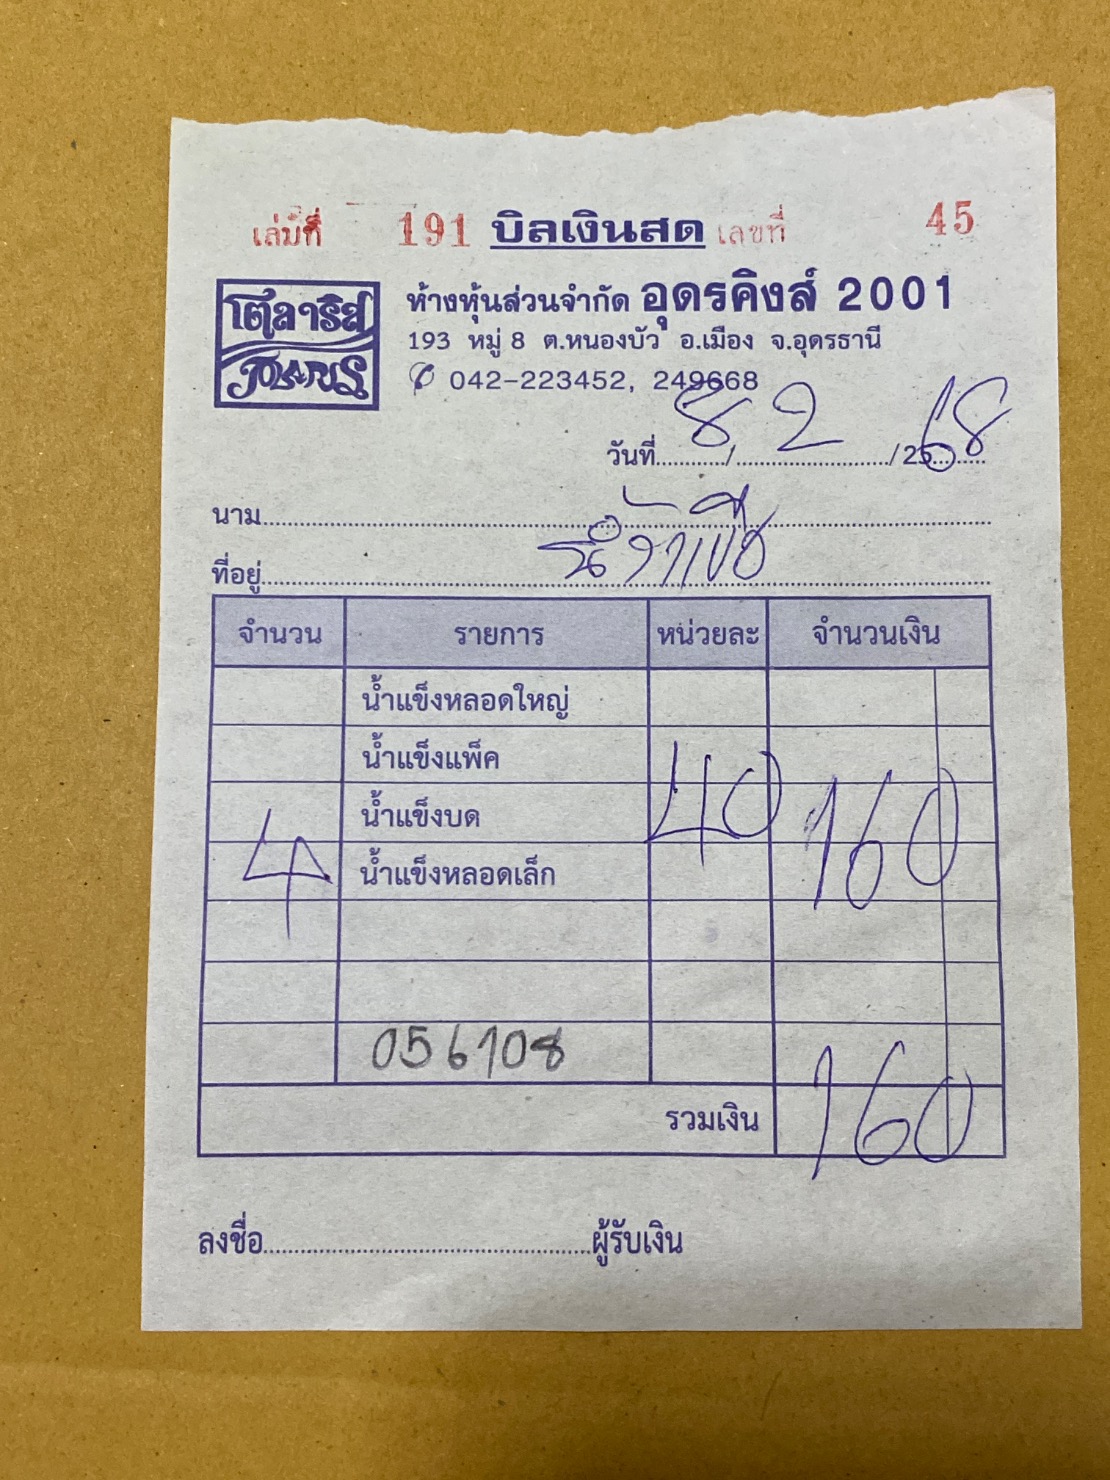 เล่มที่ 191 บิลเงินสด เลขที่ 45
โตลาริส
TOLARIS
ห้างหุ้นส่วนจำกัด อุดรคิงส์ 2001
193 หมู่ 8 ต.หนองบัว อ.เมือง จ.อุดรธานี
042-223452, 249668
วันที่ 8 / 2 / 2568
นาม
ที่อยู่
จำนวน รายการ หน่วยละ จำนวนเงิน
น้ำแข็งหลอดใหญ่
น้ำแข็งแพ็ค
น้ำแข็งบด
4 น้ำแข็งหลอดเล็ก 40 160
056108
รวมเงิน 160
ลงชื่อ ผู้รับเงิน